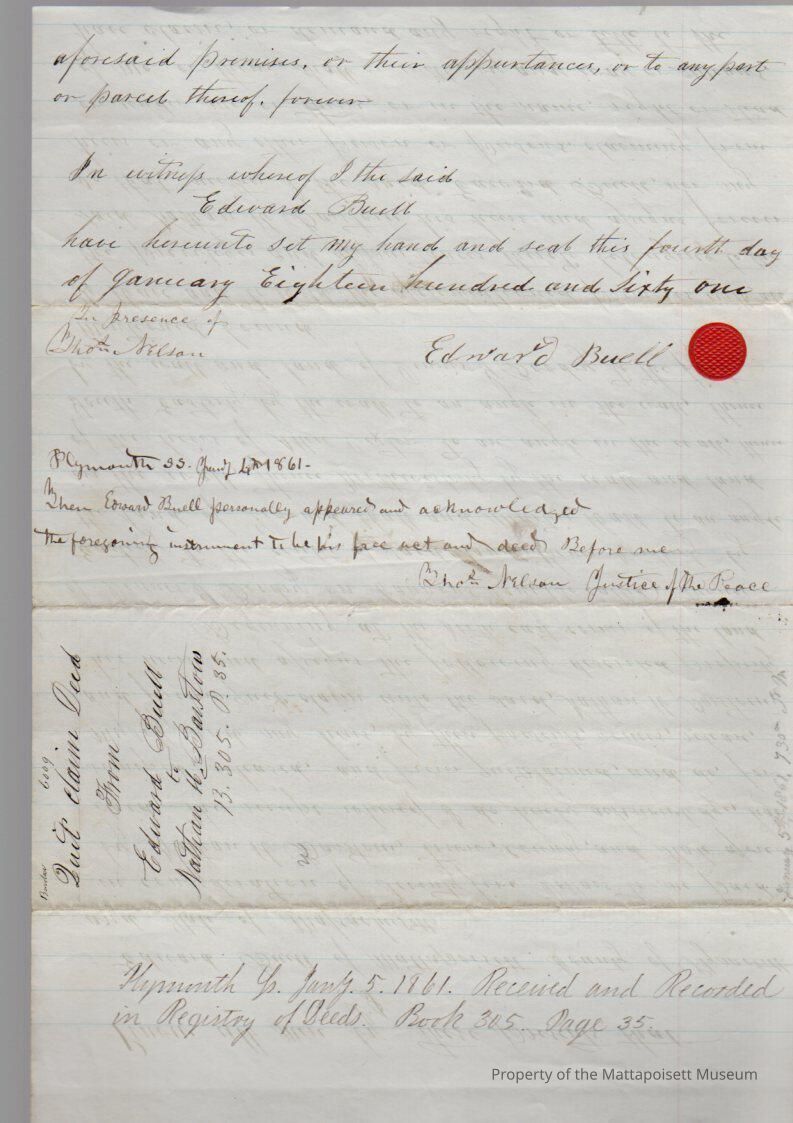 aforesaid premises, or their appurtances, or to any part
or parcel thereof. forever
In witness whereof I the said
Edward Buell
have hereunto set my hand and seal this fourth day
of January Eighteen hundred and sixty one
In presence of
Thos. Nelson
Edward Buell
Plymouth SS. Jany 4th 1861-
Then Edward Buell personally appeared and acknowledged
the foregoing instrument to be his free act and deed Before me
Thos. Nelson Justice of the Peace
Quit claim Deed
From
Edward Buell
to
Nathan H. Barstow
B. 305. P. 35.
Plymouth Ss. Jany. 5. 1861. Received and Recorded
in Registry of Deeds. Book 305. Page 35.
Property of the Mattapoisett Museum